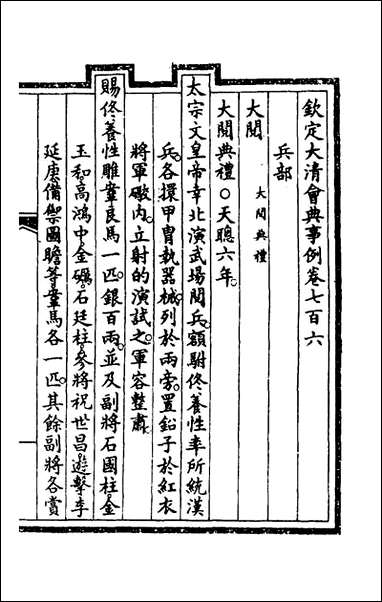 欽定大清會典事例卷七百六
兵部
大閱 大閱典禮
大閱典禮○天聰六年
太宗文皇帝幸北演武場閱兵額駙佟養性率所統漢
兵各擐甲冑執器械列於兩旁置鉛子於紅衣
將軍礮內立射的演試之軍容整肅
賜佟養性雕鞌良馬一匹銀百兩並及副將石國柱金
玉和高鴻中金礪石廷柱參將祝世昌遊擊李
延庚備禦圖瞻等鞌馬各一匹其餘副將各賞